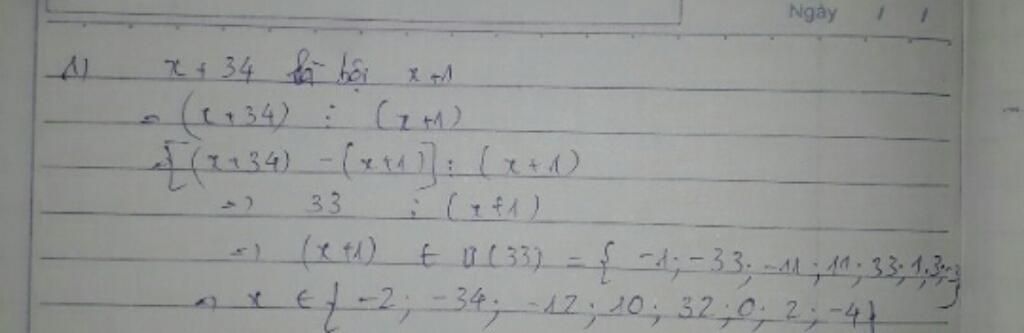 Ngày / /
1) x + 34 là bội x+1
=> (x+34) ⋮ (x+1)
=> [(x+34) - (x+1)] ⋮ (x+1)
=> 33 ⋮ (x+1)
=> (x+1) ∈ Ư(33) = { -1; -33; -11; 11; 33; 1; 3; -3}
=> x ∈ { -2; -34; -12; 10; 32; 0; 2; -4}